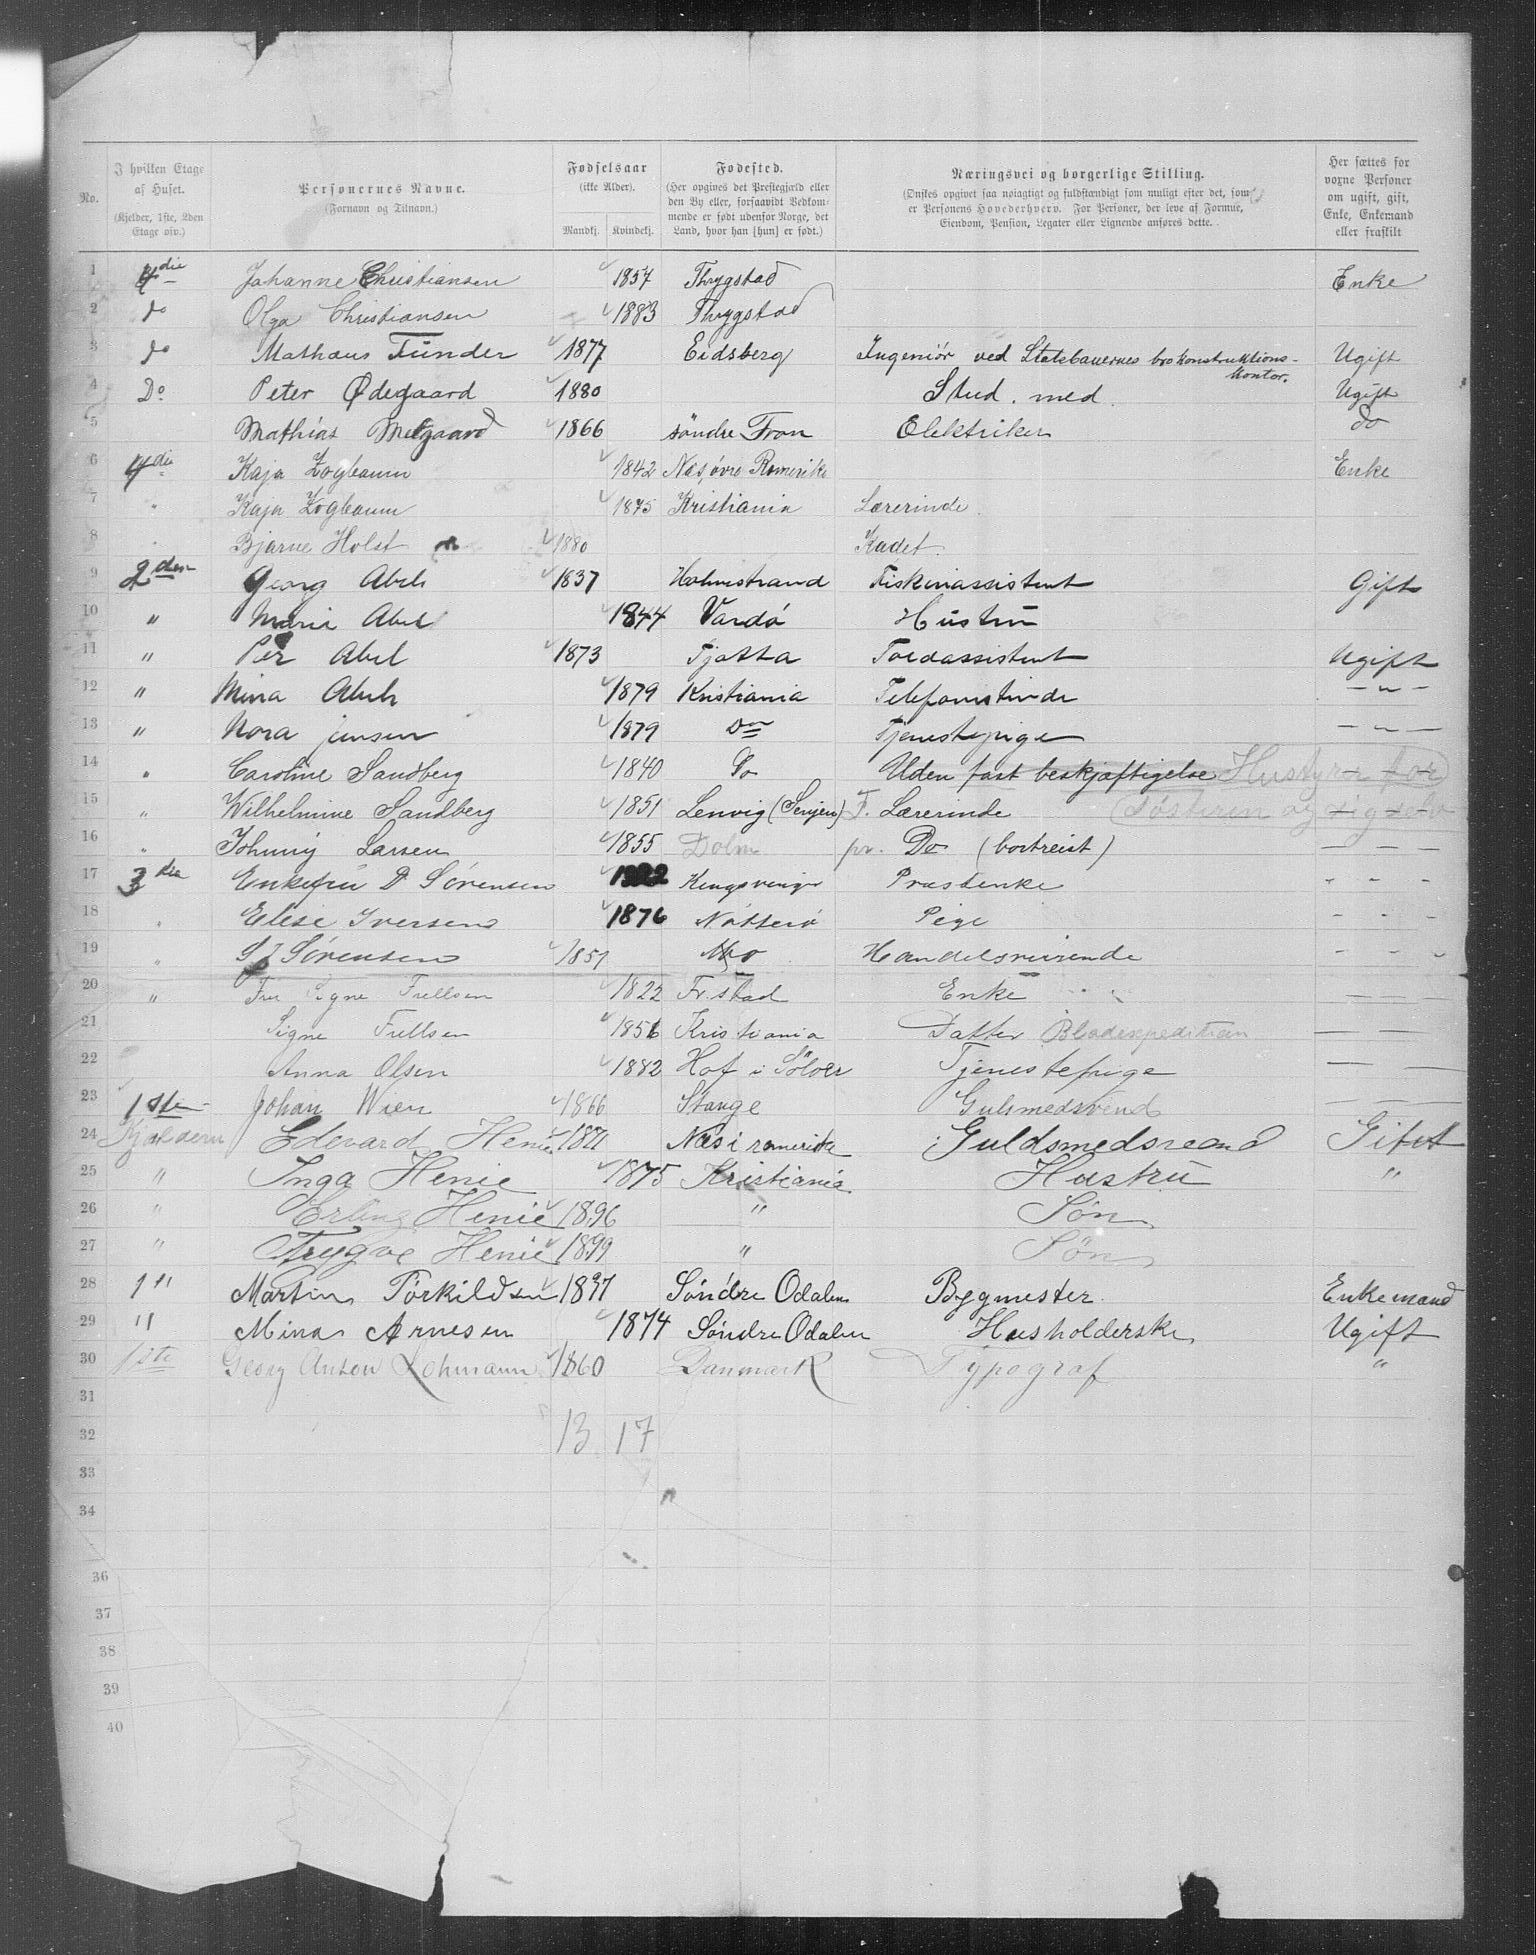 No.
I hvilken Etage af Huset. (Kjelder, 1ste, 2den Etage osv.)
Personernes Navne. (Fornavn og Tilnavn.)
Fødselsaar (ikke Alder). Mandkj. Kvindekj.
Fødested. (Her opgives det Prestegjæld eller den By eller, forsaavidt Vedkommende er født udenfor Norge, det Land, hvor han [hun] er født.)
Næringsvei og borgerlige Stilling. (Ønskes opgivet saa nøiagtigt og fuldstændigt som muligt efter det, som er Personens Hovederhverv. For Personer, der leve af Formue, Eiendom, Pension, Legater eller Lignende anføres dette.)
Her sættes for voxne Personer om ugift, gift, Enke, Enkemand eller fraskilt
1 4die Johanne Christiansen 1857 Thrygstad Enke
2 do Olga Christiansen 1883 Thrygstad
3 do Mathæus Tünder 1877 Eidsberg Ingeniör ved Statsbanernes brokonstruktions-kontor. Ugift
4 Do Peter Ødegaard 1880 Stud. med. Ugift
5 Mathias Melgaard 1866 söndre Fron Elektriker do
6 4die Kaja Zogbaum 1842 Nes, øvre Romerike Enke
7 " Kaja Zogbaum 1875 Kristiania Lærerinde.
8 " Bjarne Holst 1880 Kadet.
9 2den Georg Abel 1837 Holmestrand Fiskeriassistent Gift
10 " Maria Abel 1844 Vardö Hustru
11 " Per Abel 1873 Tjøtta Toldassistent Ugift
12 " Mina Abel 1879 Kristiania Telefonistinde — " —
13 " Nora jensen 1879 Do Tjenestepige — " —
14 " Caroline Sandberg 1840 Do Uden fast beskjæftigelse Husstyrer for
15 " Wilhelmine Sandberg 1851 Lenvig (Senjen) F. Lærerinde Søsteren og sig selv
16 " Johnny Larsen 1855 Dolm pr. Do (bortreist) — — —
17 3die Enkefru P Sörensen Kongsvinger Præstenke - - -
18 " Elise Iversen 1876 Nötterö Pige - - -
19 " Sörensen 1851 Mo Handelsreisende - - -
20 " Fru Signe Frellsen 1822 Fr.stad Enke — — —
21 Signe Frellsen 1856 Kristiania Datter Bladexpedition — —
22 Anna Olsen 1882 Hof i Sölöer Tjenestepige — —
23 1ste Johan Wien 1866 Stange Gulsmedsvend — — —
24 Kjælderen Edevard Henie 1871 Næs i romerike Guldsmedsvend Gift
25 " Inga Henie 1875 Kristiania Hustru "
26 " Erling Henie 1896 " Søn
27 " Trygve Henie 1899 " Søn
28 1" Martin Torkildsen 1837 Söndre Odalen Bygmester Enkemand
29 " Mina Arnesen 1874 Söndre Odalen Husholderske Ugift
30 1ste Georg Anton Lohmann 1860 Danmark Typograf "
31
32 13 17
33
34
36
37
38
39
40